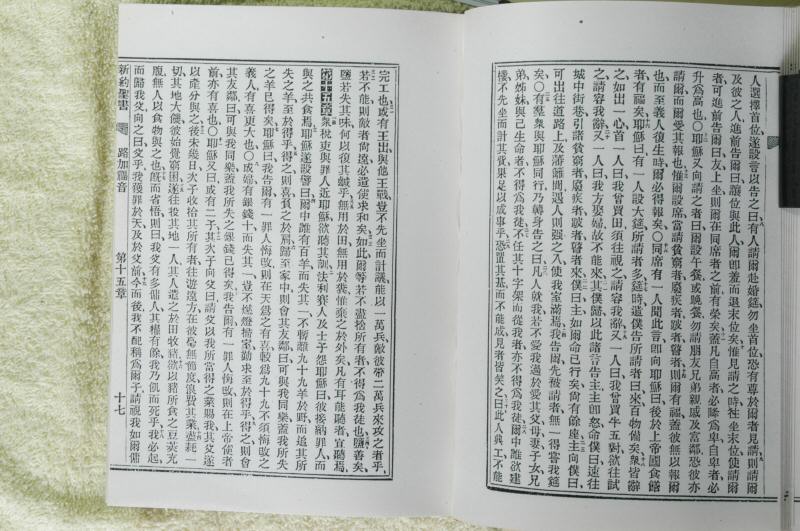 人選擇首位遂設言以告之曰有人請爾赴婚筵勿坐首位恐有尊於爾者見請則請爾
及彼之人進前告爾曰讓位與此人爾即羞而退末位矣惟見請之時往坐末位使請爾
者可進前告爾曰友上坐則爾在同席者之前有榮矣蓋凡自高者必降爲卑自卑者必
升爲高也〇耶穌又向請之者曰爾設午餐或晚餐勿請朋友兄弟親戚及富鄰恐彼亦
請爾而爾受其報也惟爾設席當請貧窮者廢疾者跛者瞽者則爾有福蓋彼無以報爾
也而至義人復生時爾必得報矣〇同席有一人聞此言即向耶穌曰後於上帝國食餅
者有福矣耶穌曰有一人設大筵所請者多筵時遣僕告所請者曰來百物備矣衆皆辭
之如出一心首一人曰我曾買田須往視之請容我辭又一人曰我曾買牛五對欲往試
之請容我辭又一人曰我方娶婦故不能來其僕歸以此諸言告主主即怒命僕曰速往
城中街巷引諸貧窮者廢疾者跛者瞽者來僕曰主如爾命已行矣尚有餘座主向僕曰
可出往道路上及藩籬間遇人則强之入使我室滿焉我告爾先被請者無一得嘗我筵
矣〇有羣衆與耶穌同行乃轉身告之曰凡人就我若不愛我過於愛其父母妻子女兄
弟姊妹與己生命者不得爲我徒不任其十字架而從我者亦不得爲我徒爾中誰欲建
樓不先坐而計其費果足以成事乎恐置其基而不能成見者皆笑之曰此人興工不能
完工也或有王出與他王戰豈不先坐而計議能以一萬兵敵彼帶二萬兵來攻之者乎
若不能則敵者尚遠必遣使求和矣如此爾等若不盡捨所有者亦不得爲我徒也鹽善矣
鹽若失其味何以復其鹹乎無用於田無用於糞惟棄之於外矣凡有耳能聽者宜聽焉
第十五章衆稅吏與罪人近耶穌欲聽其訓法利賽人及士子怨耶穌曰彼接納罪人而
與之共食焉耶穌遂設譬曰爾中誰有百羊而失其一不暫離九十九羊於野而追其所
失之羊至於得乎得之則喜負之於肩歸至家中則會其友鄰曰可與我同樂蓋我所失
之羊已得矣耶穌曰我告爾有一罪人悔改則在天爲之有喜較爲九十九不須悔改之
義人有喜更大也〇或婦有銀錢十而失其一豈不燃燈掃室勤求至於得乎得之則會
其友鄰曰可與我同樂蓋我所失之銀錢已得矣我告爾有一罪人悔改則在上帝使者
前亦有喜也〇耶穌又曰或有二子其次子向父曰請父以我所當得之業賜我其父遂
以產分與之後未幾日次子收拾其所有者往遊遠方在彼毫無節度浪費其業盡耗一
切其地大饑彼始覺窮困遂往投其地一人其人遣之於田牧豬欲以豬所食之豆莢充
腹無人以食物與之也旣而省悟則曰我父有多傭人其糧有餘我乃飢而死乎我必起
而歸我父向之曰父乎我獲罪於天及於父前今而後我不配稱爲爾子請視我如爾傭
新約聖書 路加福音 第十五章 十七